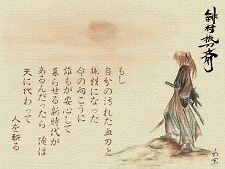 緋村
もし
自分の汚れた血刀と
犠牲になった
命の向こうに
誰もが安心して
暮らせる新時代が
あるんだったら 俺は
天に代わって
人を斬る